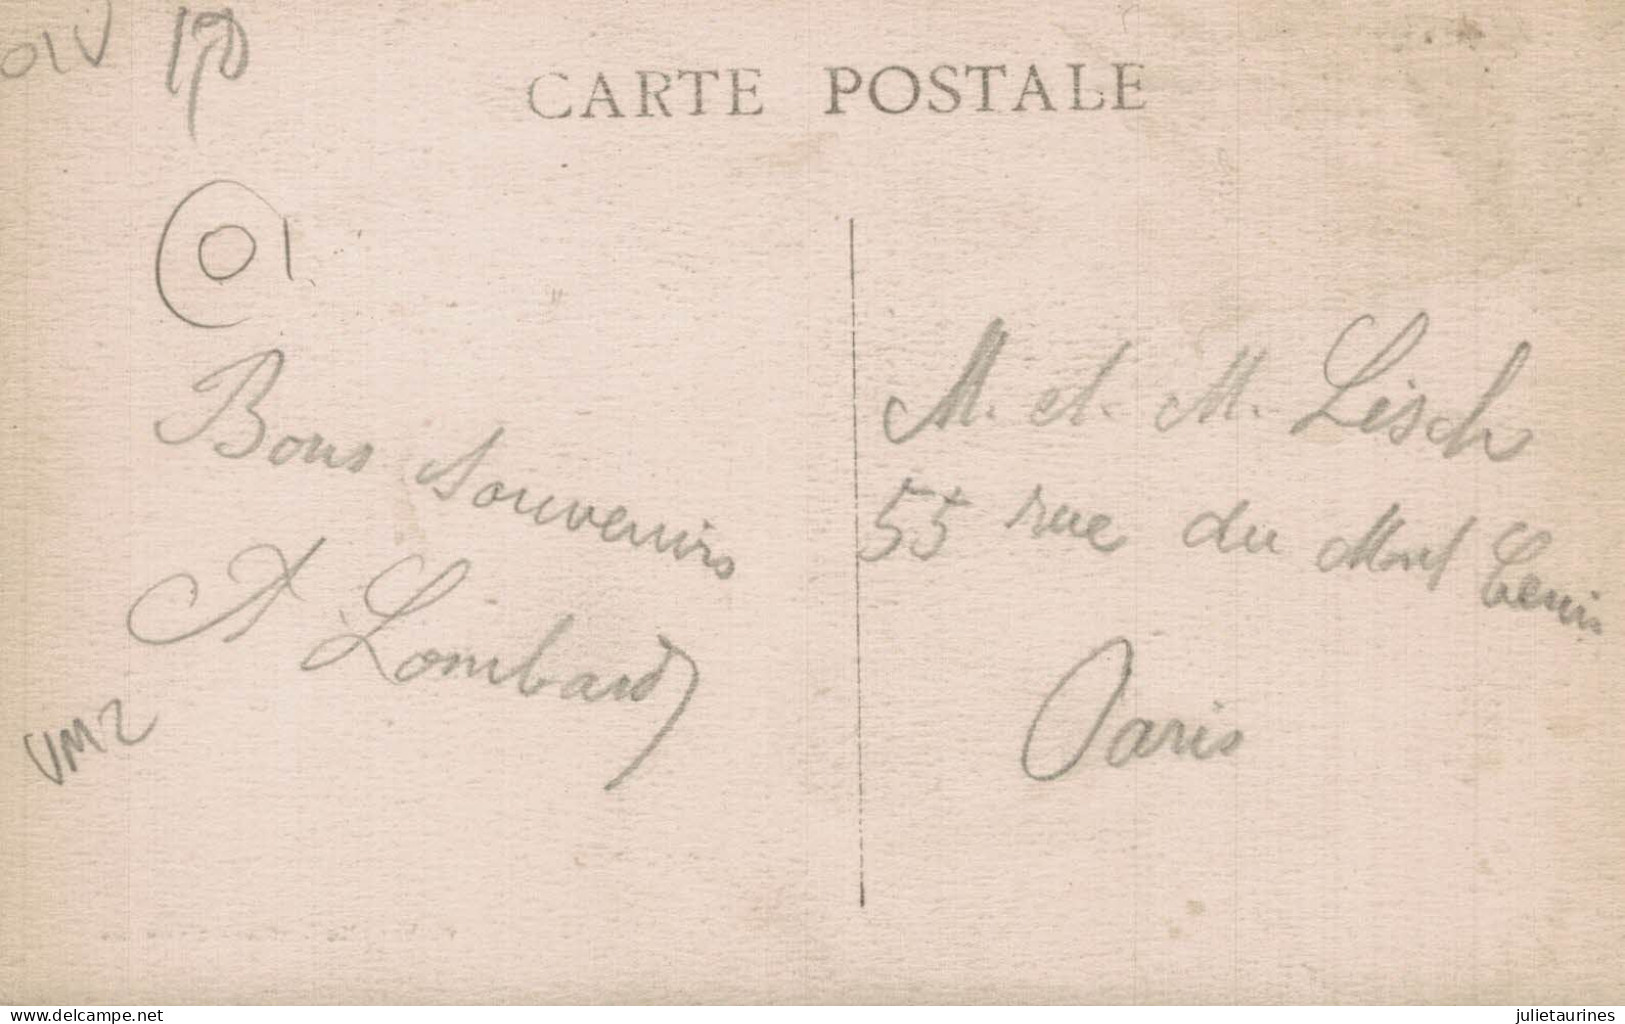 01V
CARTE POSTALE
01
Bons souvenirs
A Lombard
VM2
M. et. M. Lisch
55 rue du Mont Cenis
Paris
www.delcampe.net
julietaurines